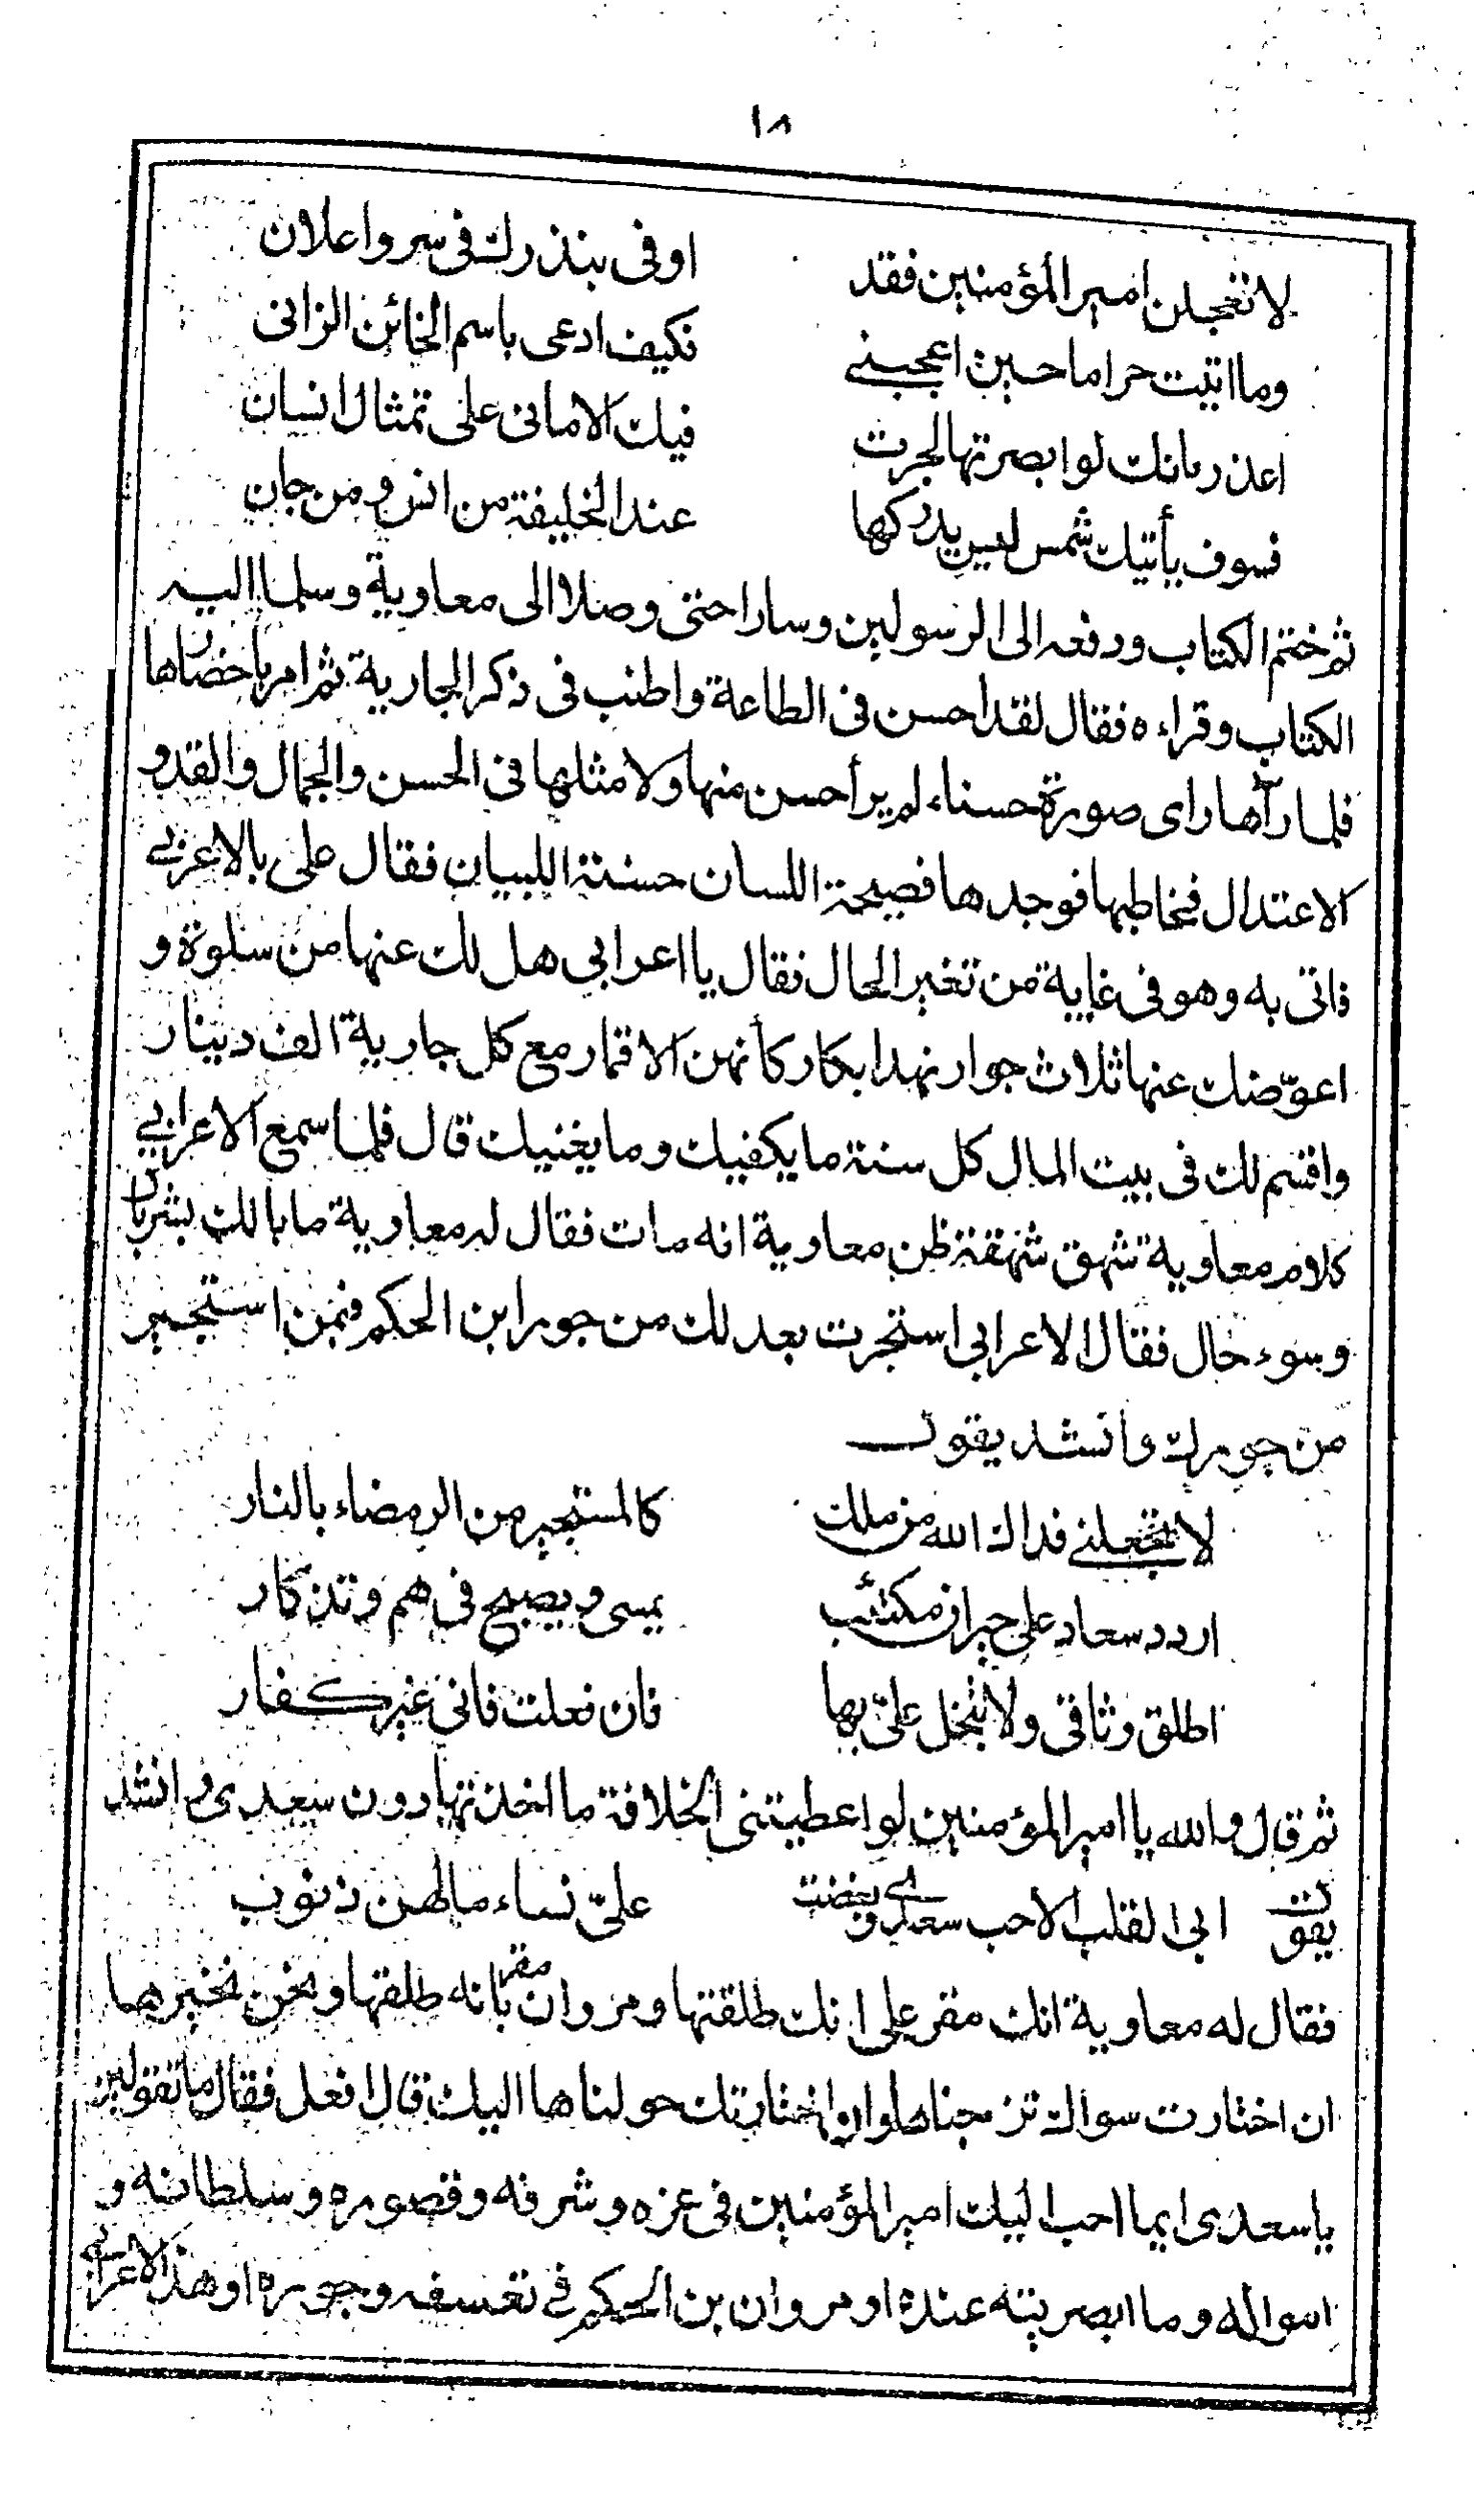 ١٨
لا تعجلن امير المؤمنين فقد اوفى بنذرك فى سر واعلان
وما اتيت حراما حين اعجبنى فكيف ادعى باسم الخائن الزانى
اعذر بانك لو ابصرتها لجرت فيك الامانى على تمثال انسان
فسوف يأتيك شمس ليس يدركها عند الخليفة من انس ومن جان
ثم ختم الكتاب ودفعه الى الرسولين وسارا حتى وصلا الى معاوية وسلما اليه
الكتاب وقراءه فقال لقد احسن فى الطاعة واطنب فى ذكر الجارية ثم امر باحضارها
فلما رآها راى صورة حسناء لم ير أحسن منها ولا مثلها فى الحسن والجمال والقد و
الاعتدال فخاطبها فوجدها فصيحة اللسان حسنة اللبيان فقال على بالاعرابي
فاتى به وهو فى غاية من تغير الحال فقال يا اعرابي هل لك عنها من سلوة و
اعوّضك عنها ثلاث جوار نهد ابكار كأنهن الاقمار مع كل جارية الف دينار
واقسم لك فى بيت المال كل سنة ما يكفيك وما يغنيك قال فلما سمع الاعرابي
كلام معاوية شهق شهقة ظن معاوية انه مات فقال له معاوية ما بالك بشر بال
وسوء حال فقال الاعرابي استجرت بعدلك من جور ابن الحكم فمن استجير
من جورك وانشد يقول
لا تجعلنى فداك الله من ملك كالمستجير من الرمضاء بالنار
اردد سعاد على حيران مكتئب يمسى ويصبح فى هم وتذكار
اطلق وثاقى ولا تبخل علىّ بها فان فعلت فانى غير كفار
ثم قال والله يا امير المؤمنين لو اعطيتنى الخلافة ما اخذتها دون سعدى وانشد
يقول ابى القلب الا حب سعدى وبغضت علىّ نساء ما لهن ذنوب
فقال له معاوية انك مقر على انك طلقتها ومروان مقر بانه طلقها ونحن نخيرها
ان اختارت سواك تزوجناها وان اختارتك حولناها اليك قال افعل فقال ما تقولين
يا سعدى ايما احب اليك امير المؤمنين فى عزه وشرفه وقصوره وسلطانه و
امواله وما ابصرتيه عنده او مروان بن الحكم فى تعسفه وجوره او هذا الاعرابي